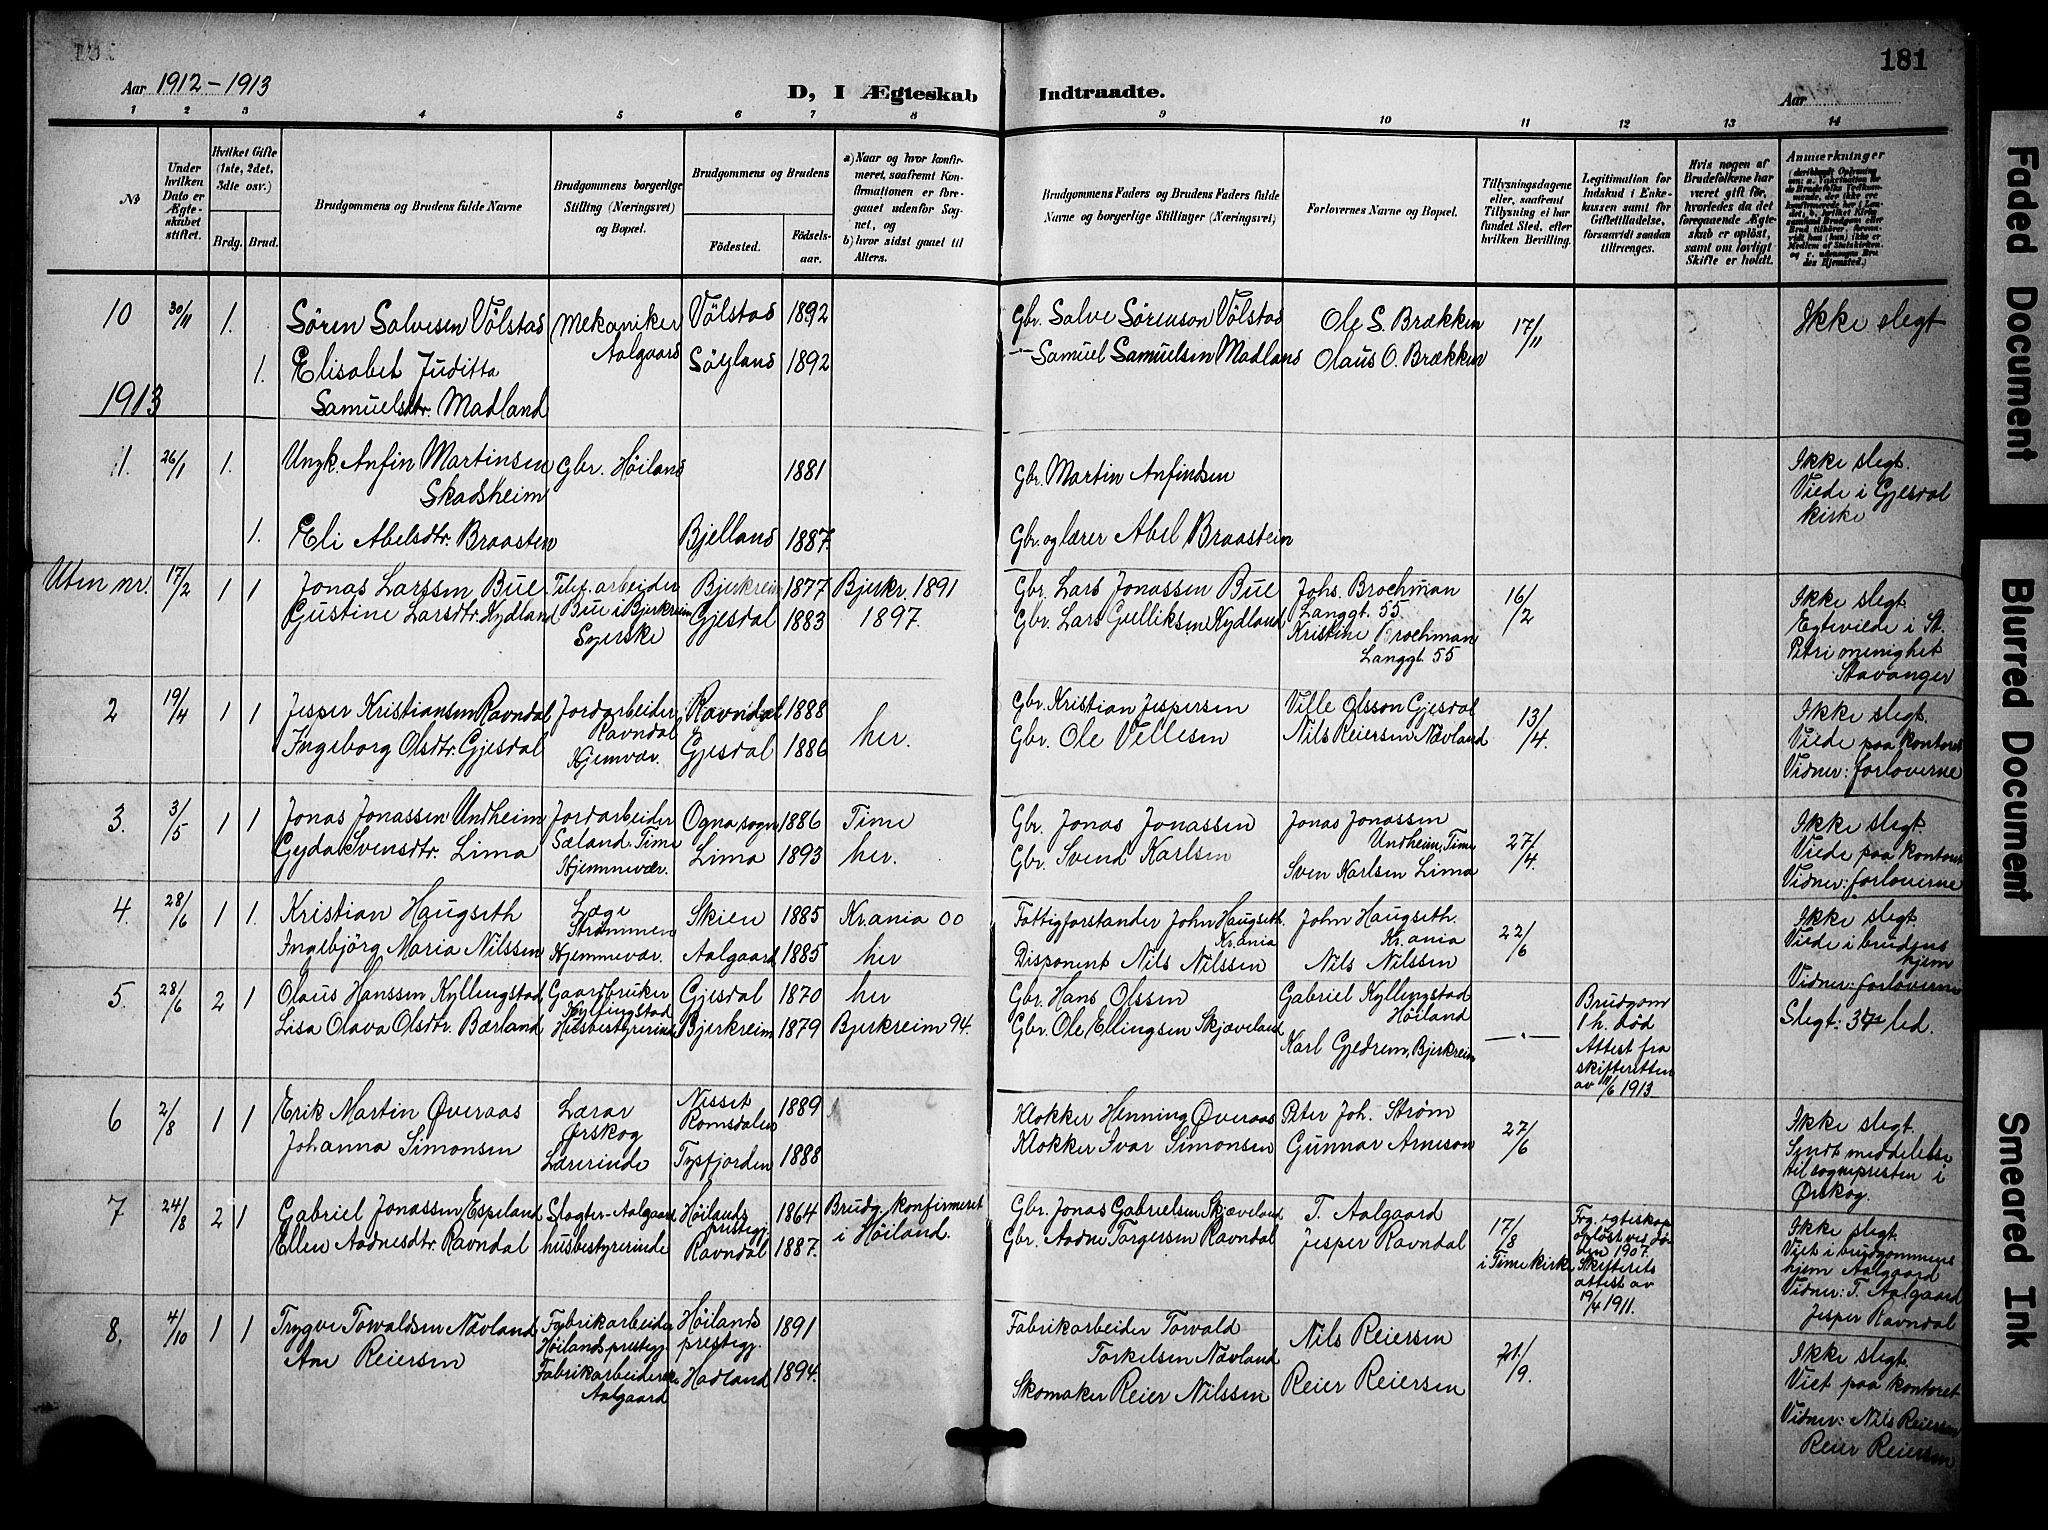 181
Aar 1912–1913
D, I Ægteskab Indtraadte.
Aar
1 2 3 4 5 6 7 8 9 10 11 12 13 14
No
Under hvilken Dato er Ægteskabet stiftet.
Hvilket Gifte (1ste, 2det, 3die osv.)
Brdg. Brud.
Brudgommens og Brudens fulde Navne
Brudgommens borgerlige Stilling (Næringsvei) og Bopæl.
Brudgommens og Brudens
Födested.
Födselsaar.
a) Naar og hvor konfirmeret, saafremt Konfirmationen er foregaaet udenfor Sognet, og
b) hvor sidst gaaet til Alters.
Brudgommens Faders og Brudens Faders fulde Navne og borgerlige Stillinger (Næringsvei)
Forlovernes Navne og Bopæl.
Tillysningsdagene eller, saafremt Tillysning ei har fundet Sted, efter hvilken Bevilling.
Legitimation for Indskud i Enkekassen samt for Giftetilladelse, forsaavidt saadan tiltrænges.
Hvis nogen af Brudefolkene har været gift för, hvorledes da det foregaaende Ægteskab er oplöst, samt om lovligt Skifte er holdt.
Anmærkninger
10 30/11 1. Sören Salvesen Völstad Mekaniker Völstad 1892 Gbr. Salve Sørenson Völstad Ole S. Brækken 17/11 Ikke slegt
Aalgaard
1. Elisabet Juditta Söyland 1892 -"- Samuel Samuelsen Madland Olaus O. Brækken
Samuelsdtr. Madland
1913
1. 26/1 1. Ungk. Anfin Martinsen Gbr. Höiland 1881 Gbr. Martin Anfindsen Ikke slegt.
Skadsheim Viede i Gjesdal
kirke
1. Eli Abelsdtr. Braasten Bjelland 1887. Gbr. og lærer Abel Braastein
Uten nr. 17/2 1 1 Jonas Larssen Bue Telef. arbeider Bjerkreim 1877 Bjerkr. 1891 Gbr. Lars Jonassen Bue Johs. Brochman 16/2 Ikke slegt.
Bue i Bjerkreim Langgt. 55 Egteviede i St.
Gustine Larsdtr. Kydland Syerske Gjesdal 1883 1897. Gbr. Lars Gulliksen Kydland Kristine Brochman Petri menighet
Langgt. 55 Stavanger
2 19/4 1 1 Jesper Kristiansen Ravndal Jordarbeider Ravndal 1888 her. Gbr. Kristian Jespersen Ville Olsson Gjesdal 13/4. Ikke slegt.
Ravndal Viede paa kontoret
Ingeborg Olsdtr. Gjesdal Hjemvær. Gjesdal 1886 Gbr. Ole Villesen Nils Reiersen Navland Vidner: forloverne
3. 3/5 1 1 Jonas Jonassen Undheim Jordarbeider Ogna sogn 1886 Time Gbr. Jonas Jonassen Jonas Jonassen 27/4. Ikke slegt.
Sæland, Time Undheim, Time Viede paa kontoret
Gyda Svensdtr. Lima Hjemmevær. Lima 1893 her. Gbr. Svend Karlsen Sven Karlsen Lima Vidner: forloverne
4. 28/6 1 1. Kristian Haugseth Læge Skien 1885 Kr.ania 00 Fattigforstander John Haugseth. John Haugseth. 22/6 Ikke slegt.
Strømmen Kr.ania Kr.ania Viede i brudens
hjem
Ingebjörg Maria Nilssen Hjemmevær. Aalgaard 1885 her Disponent Nils Nilssen Nils Nilssen Vidner: forloverne
5. 28/6 2 1 Olaus Hanssen Kyllingstad Gaardbruker Gjesdal 1870 her Gbr. Hans Olssen Gabriel Kyllingstad -"- Brudgom Slegt: 3die led.
Kyllingstad Höiland 1 h. död
Lisa Olava Olsdtr. Bærland Husbestyrerinde Bjerkreim 1879 Bjerkreim 94. Gbr. Ole Ellingsen Skjæveland Karl Gjedrem, Bjerkreim Attest fra
skifteretten
av 11/6 1913
6 2/8 1 1 Erik Martin Øveraas Lærar Nisset 1889 Klokker Henning Øveraas Peter Joh. Strøm 27/6 Ikke slegt.
Ørskog Romsdalen Sendt meddelelse
Johanna Simonsen Lærerinde Tysfjorden 1888 Klokker Ivar Simonsen Gunnar Arneson til sognpresten i
Ørskog.
7 24/8 2 1 Gabriel Jonassen Espeland Slagter-Aalgaard Höilands 1864 Brudg. konfirmeret Gbr. Jonas Gabrielsen Skjæveland T. Aalgaard 17/8 Frg. egteskap Ikke slegt.
prestegj. i Höiland. oplöst ved dö- Viet i brudgommens
Ellen Aadnesdtr. Ravndal husbestyrerinde Ravndal 1887. Gbr. Aadne Torgersen Ravndal Jesper Ravndal i Time kirke den 1907. hjem Aalgaard
Skifterets Vidner: T. Aalgaard
attest av Jesper Ravndal
19/4 1911.
8. 4/10 1 1 Trygve Torvaldsen Navland Fabrikarbeider Höilands 1891 Fabrikarbeider Torvald Nils Reiersen 21/9. Ikke slegt.
Höilands prestegj. prestegj. Torkelsen Navland Viet paa kontoret
Ane Reiersen Fabrikarbeiderske Hadland 1894. Skomaker Reier Nilssen Reier Reiersen Vidner: Nils Reiersen
Aalgaard Reier Reiersen
Faded Document
Blurred Document
Smeared Ink